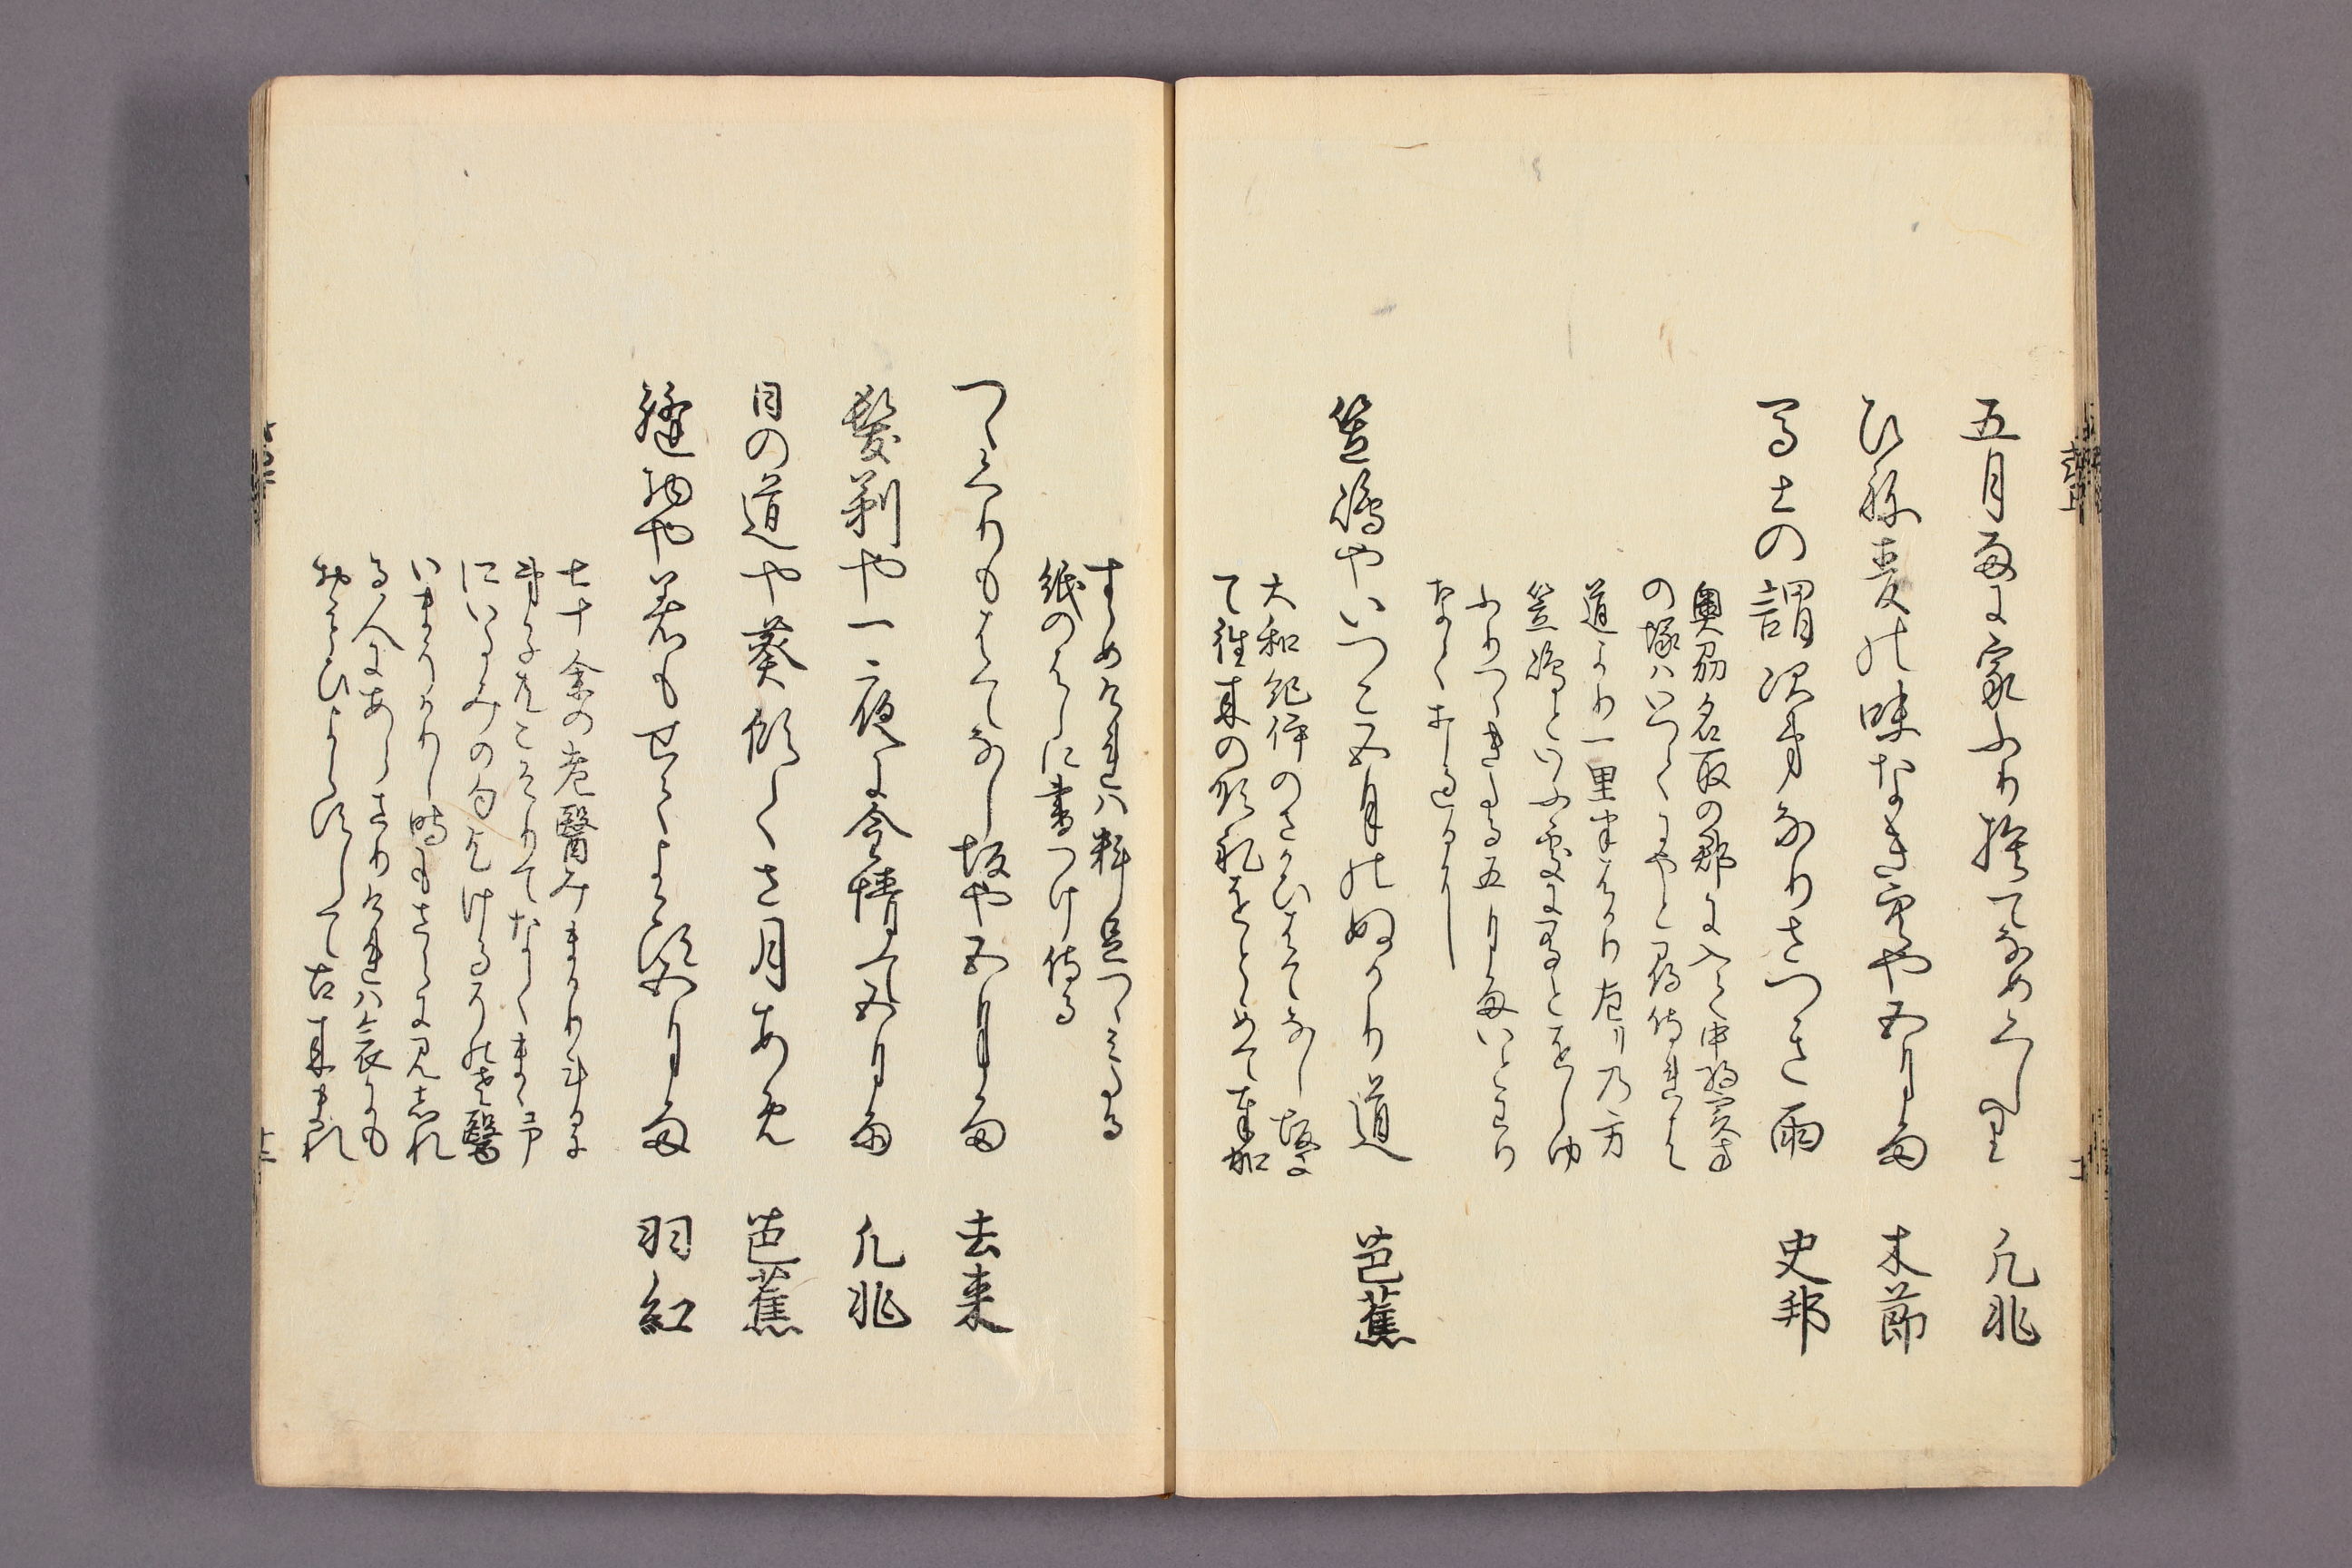 五月雨に家ふり捨てなめくしり　凡兆
ひね麦の味なき空や五月雨　木節
馬士の謂次第なりさつき雨　史邦
奥刕名取の郡に入て中将実方
の塚ハいつくにやと尋侍れは
道より一里半はかり左リの方
笠嶋といふ処に有とをしゆ
ふりつゝきたる五月雨いとわり
なく打過るに
笠嶋やいつこ五月のぬかり道　芭蕉
大和紀伊のさかひはてなし坂に
て往来の順礼をとゝめて奉加
すゝめけれハ料足つゝみたる
紙のはしに書つけ侍る
つゝくりもはてなし坂や五月雨　去来
髪剃や一夜に金情て五月雨　凡兆
日の道や葵傾くさ月あめ　芭蕉
縫物や着もせてよこす五月雨　羽紅
七十余の老醫みまかりけるに
弟子共こそりてなくまゝ予
にいたみの句乞けるその老醫
いまそかりし時もさらに見しれ
る人にあらさりけれハ哀にも
おもひよらすして古来まれ